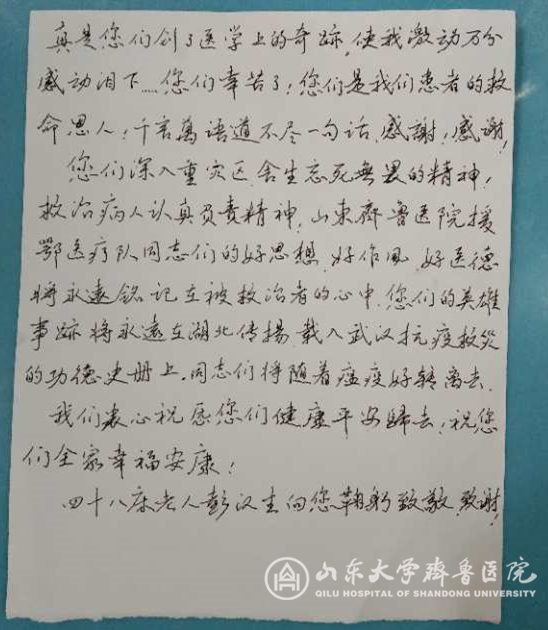 真是您们创了医学上的奇跡,使我激动万分
感动泪下……您们幸苦了!您们是我们患者的救
命恩人!千言萬语道不尽一句话,感謝!感谢!
您们深入重灾区,舍生忘死無畏的精神!
救治病人认真负责精神,山東齊鲁医院援
鄂医疗队同志们的好思想,好作風,好医德
将永遠铭记在被救治者的心中,您们的英雄
事跡将永遠在湖北传揚,载入武汉抗疫救災
的功德史册上,同志们将随着瘟疫好轉离去.
我们衷心祝愿您们健康平安歸去!祝您
们全家幸福安康!
四十八床老人彭汉生向您鞠躬致敬,致谢!
山东大学齊鲁医院
QILU HOSPITAL OF SHANDONG UNIVERSITY